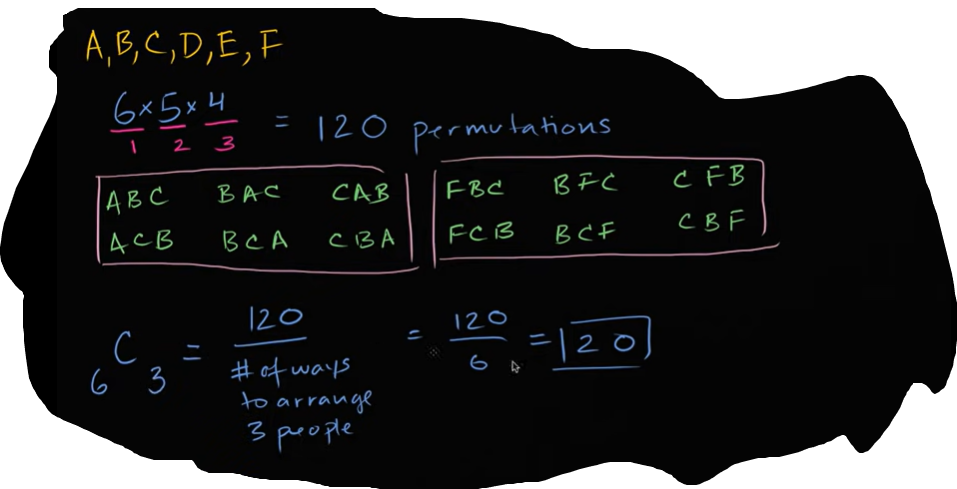 A, B, C, D, E, F
6 × 5 × 4 = 120 permutations
1 2 3
ABC BAC CAB FBC BFC CFB
ACB BCA CBA FCB BCF CBF
6C3 = 120 / # of ways to arrange 3 people = 120 / 6 = 20